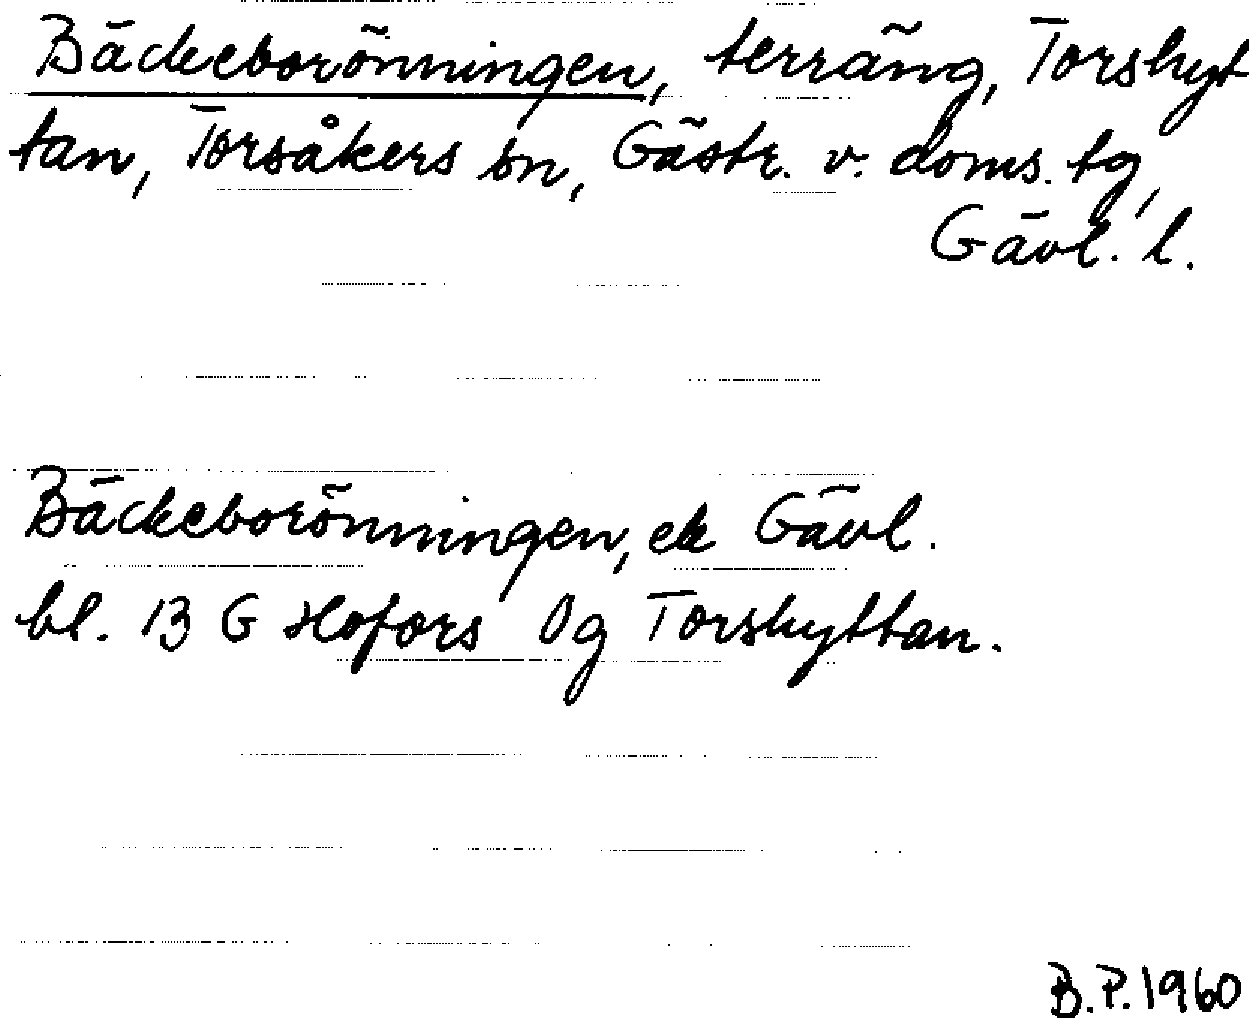 Bäckeborönningen, terräng, Torshyt
tan, Torsåkers sn, Gästr. v. doms. tg,
Gävl. l.
Bäckeborönningen, ek Gävl.
bl. 13 G Hofors 0g Torshyttan.
B.P. 1960